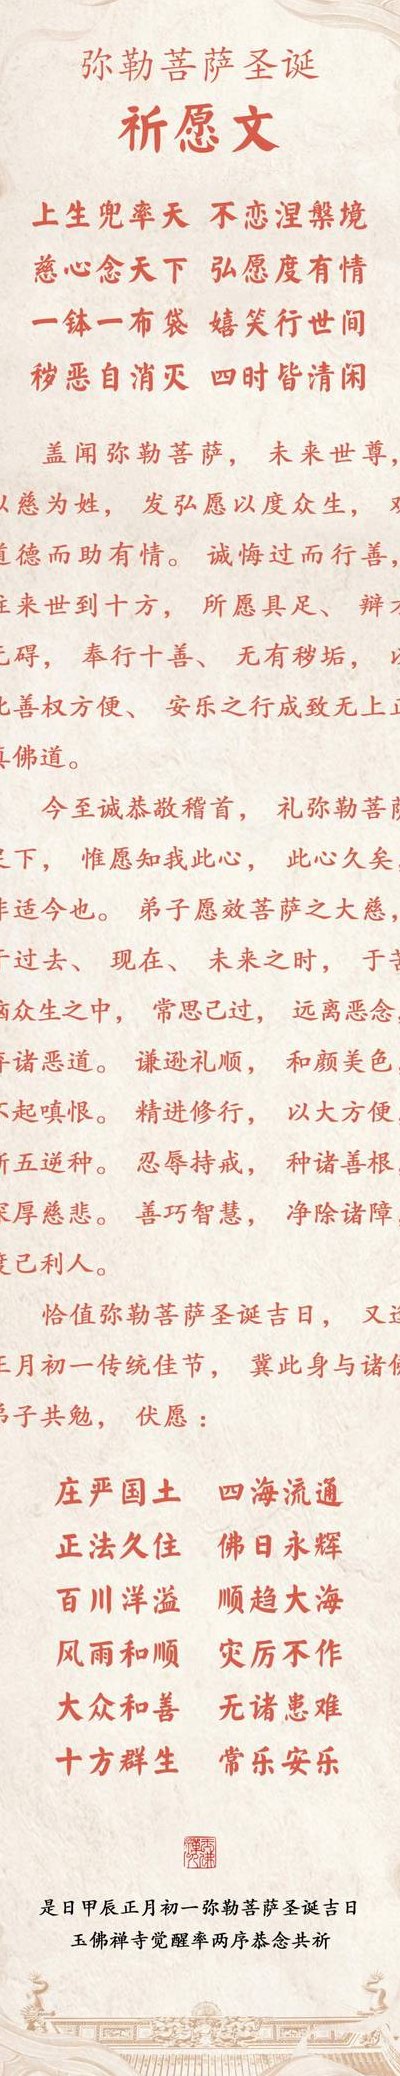 弥勒菩萨圣诞
祈愿文
上生兜率天 不恋涅槃境
慈心念天下 弘愿度有情
一钵一布袋 嬉笑行世间
秽恶自消灭 四时皆清闲
盖闻弥勒菩萨， 未来世尊，
以慈为姓， 发弘愿以度众生，
道德而助有情。 诚悔过而行善，
往来世到十方， 所愿具足、 辩才
无碍， 奉行十善、 无有秽垢， 以
此善权方便、 安乐之行成致无上正
真佛道。
今至诚恭敬稽首， 礼弥勒菩萨
足下， 惟愿知我此心， 此心久矣，
非适今也。 弟子愿效菩萨之大慈，
于过去、 现在、 未来之时， 于苦
恼众生之中， 常思己过， 远离恶念，
弃诸恶道。 谦逊礼顺， 和颜美色，
不起嗔恨。 精进修行， 以大方便，
断五逆种。 忍辱持戒， 种诸善根，
深厚慈悲。 善巧智慧， 净除诸障，
度己利人。
恰值弥勒菩萨圣诞吉日， 又逢
正月初一传统佳节， 冀此身与诸佛
弟子共勉， 伏愿：
庄严国土 四海流通
正法久住 佛日永辉
百川洋溢 顺趋大海
风雨和顺 灾厉不作
大众和善 无诸患难
十方群生 常乐安乐
是日甲辰正月初一弥勒菩萨圣诞吉日
玉佛禅寺觉醒率两序恭念共祈